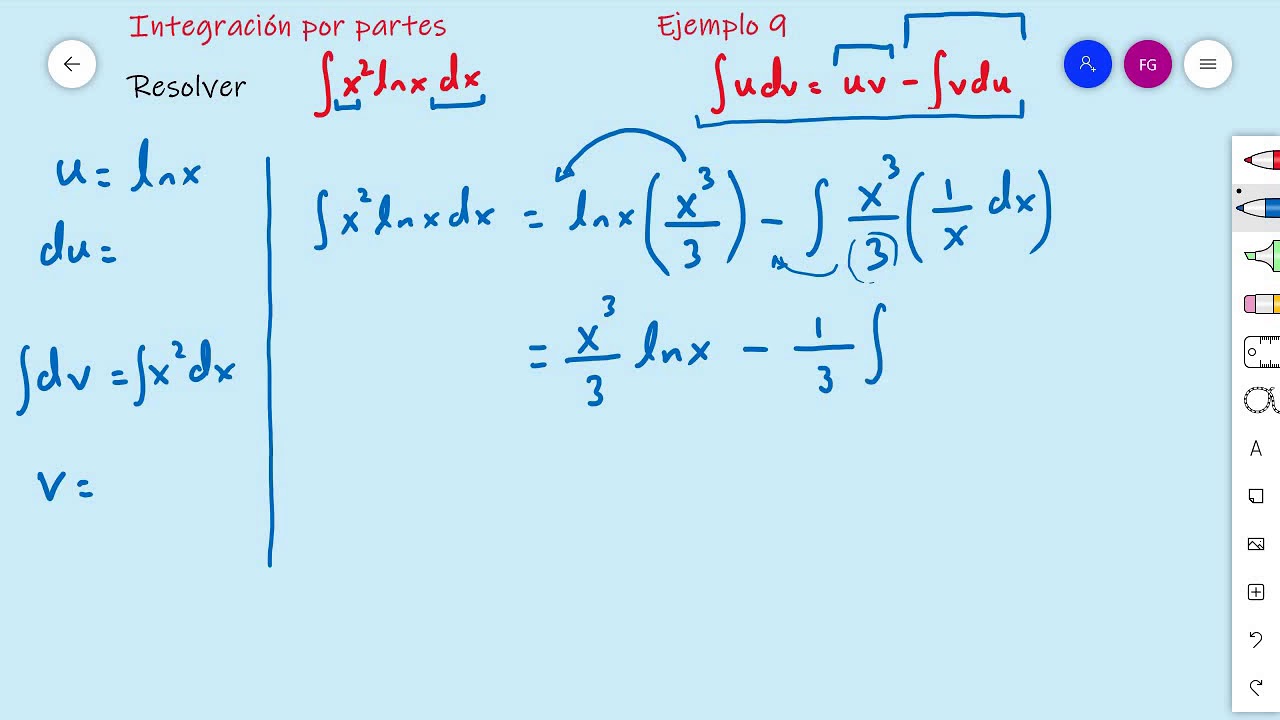 Integración por partes
Ejemplo 9
Resolver ∫x²lnx dx
∫udv = uv - ∫vdu
FG
u = lnx
du =
∫dv = ∫x²dx
v =
∫x²lnxdx = lnx(x³/3) - ∫x³/3(1/x dx)
= x³/3 lnx - 1/3 ∫
A